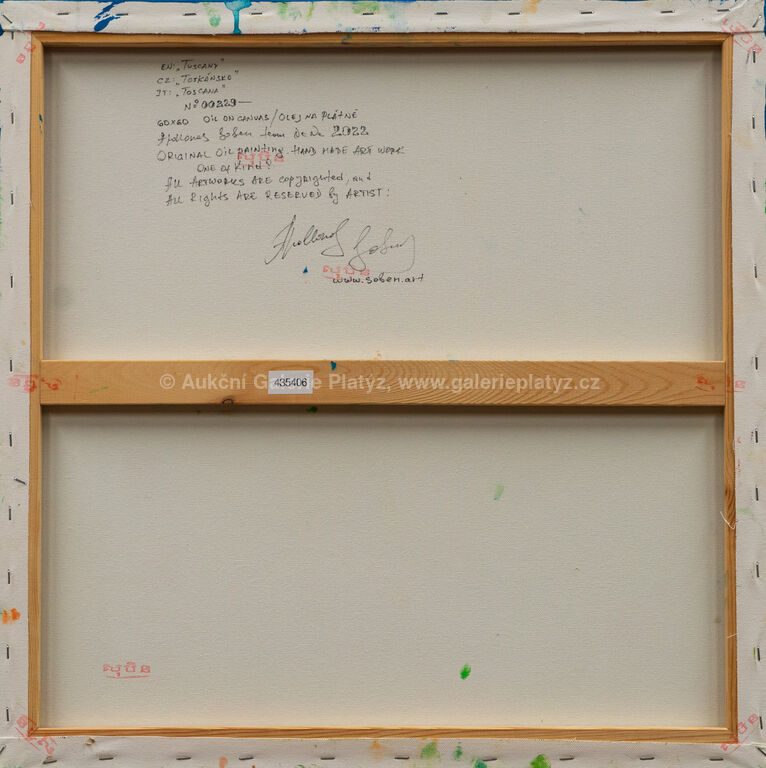 EN: „TUSCANY"
CZ: „TOSKÁNSKO"
IT: „TOSCANA"
Nº 00229—
60X60 OIL ON CANVAS / OLEJ NA PLÁTNĚ
Apollonas Soben 2022
ORIGINAL OIL PAINTING. HAND MADE ART WORK
សុបិន
ONE of KIND!
All ARTWORKS ARE copyrighted, and
All Rights ARE RESERVED by ARTIST!
Apollonas Soben
សុបិន
www.soben.art
© Aukční Galerie Platýz, www.galerieplatyz.cz
435406
សុបិន